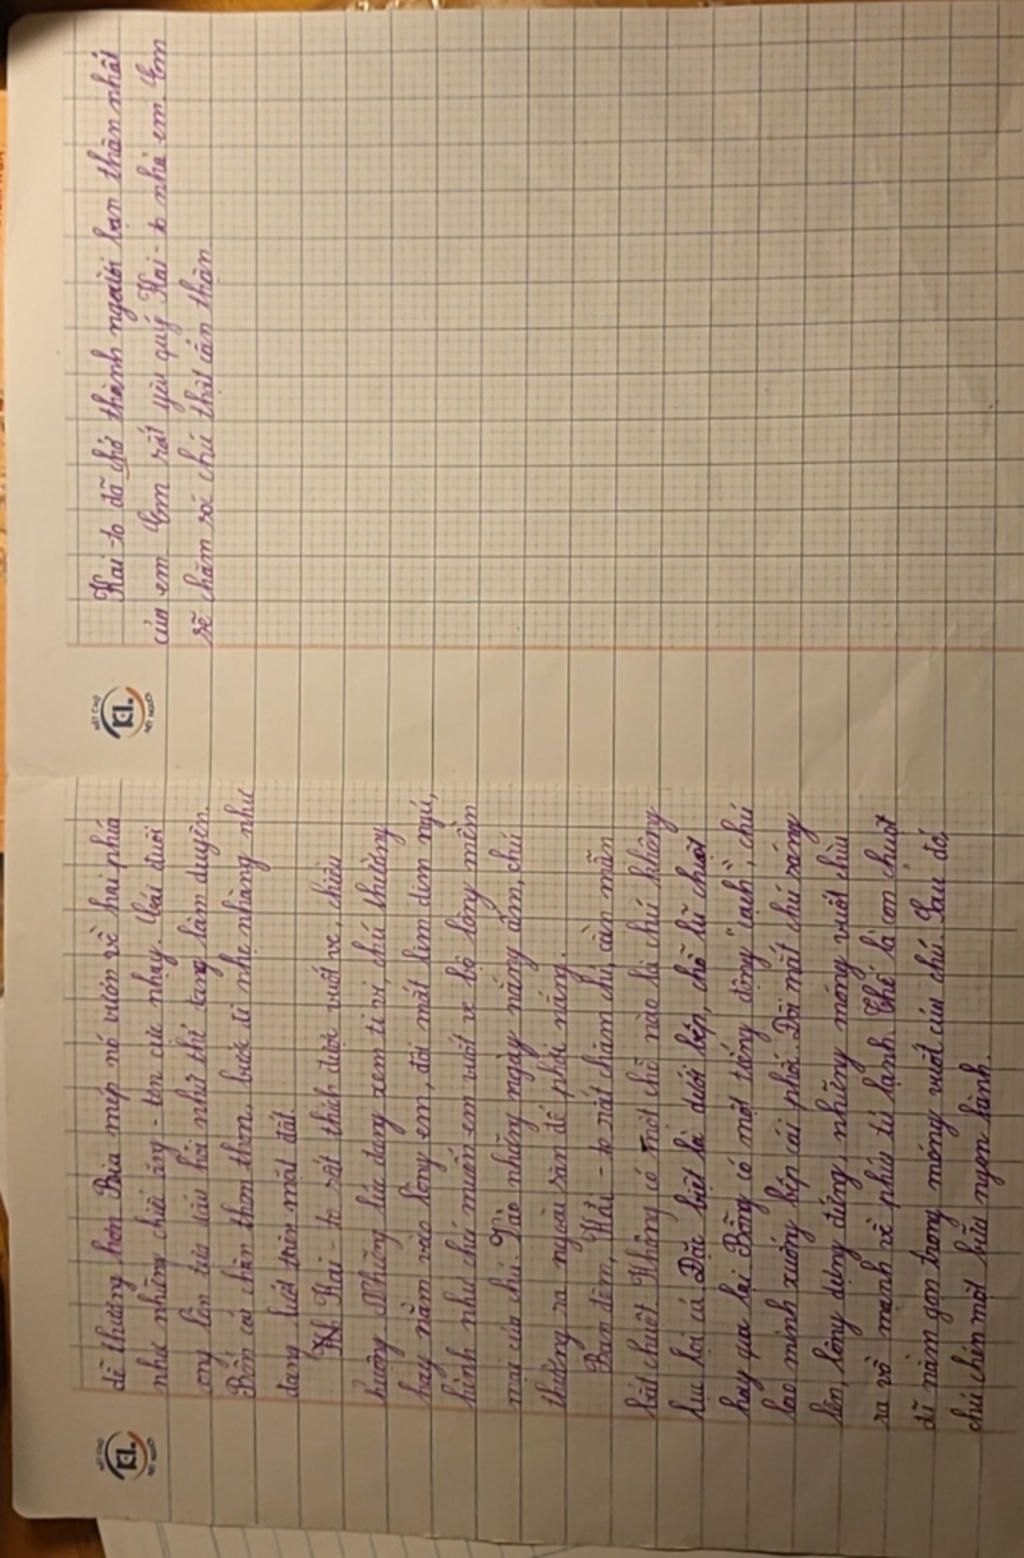 dễ thương hơn. Bia mép nó vươn về hai phía
như những chiếc ăng-ten cực nhạy. Cái đuôi
cong lên tựa dấu hỏi như thể đang làm duyên.
Bốn cái chân thon thon, bước đi nhẹ nhàng như
đang lướt trên mặt đất.
Hai-to rất thích được vuốt ve, chiều
chuộng. Những lúc đang xem ti vi, chú thường
hay nằm vào lòng em, đôi mắt lim dim ngủ,
hình như chú muốn em vuốt ve bộ lông mềm
mại của chú. Vào những ngày nắng ấm, chú
thường ra ngoài sân để phơi nắng.
Ban đêm, Hai-to rất chăm chỉ, cần mẫn
bắt chuột. Không có một chỗ nào là chú không
lui tới cả. Đặc biệt là dưới bếp, chỗ lũ chuột
hay qua lại. Bỗng có một tiếng động "cạch", chú
lao mình xuống bếp cái phốc. Đôi mắt chú sáng
lên, lông dựng đứng, những móng vuốt chìa
ra vồ mạnh về phía tủ lạnh. Thế là con chuột
đã nằm gọn trong móng vuốt của chú. Sau đó,
chú chén một bữa ngon lành.
KL.
Hai-to đã chở thành người bạn thân nhất
của em. Em rất yêu quý Hai-to nhà em. Em
sẽ chăm sóc chú thật cẩn thận
KL.